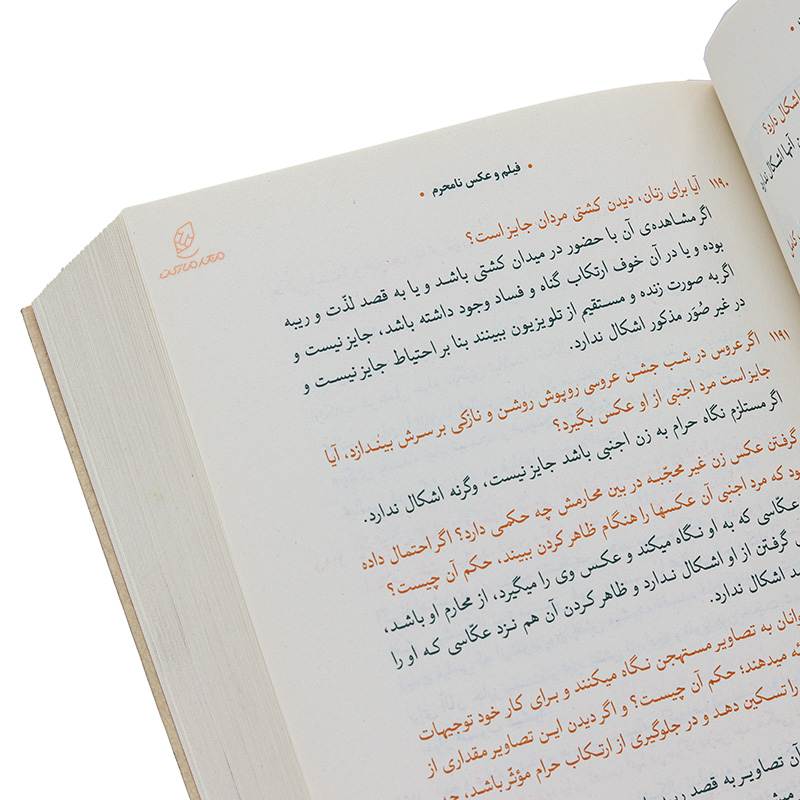 • فیلم و عکس نامحرم •
۱۱۹۰ آیا برای زنان، دیدن کشتی مردان جایز است؟
اگر مشاهده‌ی آن با حضور در میدان کشتی باشد و یا به قصد لذّت و ریبه
بوده و یا در آن خوف ارتکاب گناه و فساد وجود داشته باشد، جایز نیست و
اگر به صورت زنده و مستقیم از تلویزیون ببینند بنا بر احتیاط جایز نیست و
در غیر صُوَر مذکور اشکال ندارد.
۱۱۹۱ اگر عروس در شب جشن عروسی روپوش روشن و نازکی بر سرش بیندازد، آیا
جایز است مرد اجنبی از او عکس بگیرد؟
اگر مستلزم نگاه حرام به زن اجنبی باشد جایز نیست، وگرنه اشکال ندارد.
گرفتن عکس زن غیر محجّبه در بین محارمش چه حکمی دارد؟ اگر احتمال داده
که مرد اجنبی آن عکسها را هنگام ظاهر کردن ببیند، حکم آن چیست؟
عکّاسی که به او نگاه میکند و عکس وی را میگیرد، از محارم او باشد،
گرفتن از او اشکال ندارد و ظاهر کردن آن هم نزد عکّاسی که او را
اشکال ندارد.
به تصاویر مستهجن نگاه میکنند و برای کار خود توجیهات
میدهند؛ حکم آن چیست؟ و اگر دیدن این تصاویر مقداری از
را تسکین دهد و در جلوگیری از ارتکاب حرام مؤثّر باشد،
آن تصاویر به قصد
اشکال دارد؟
آنها اشکال ندارد